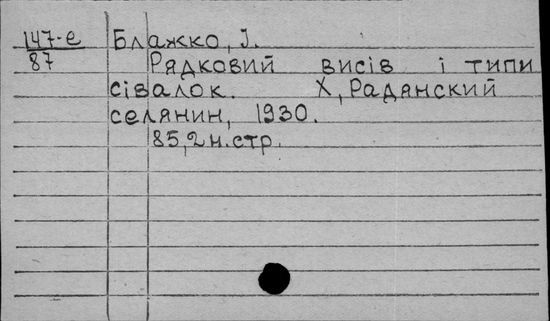 147-е Блажко, І.
87 Рядковий висів і типи
сівалок. Х, Радянский
селянин, 1930.
85, 2 н. стр.